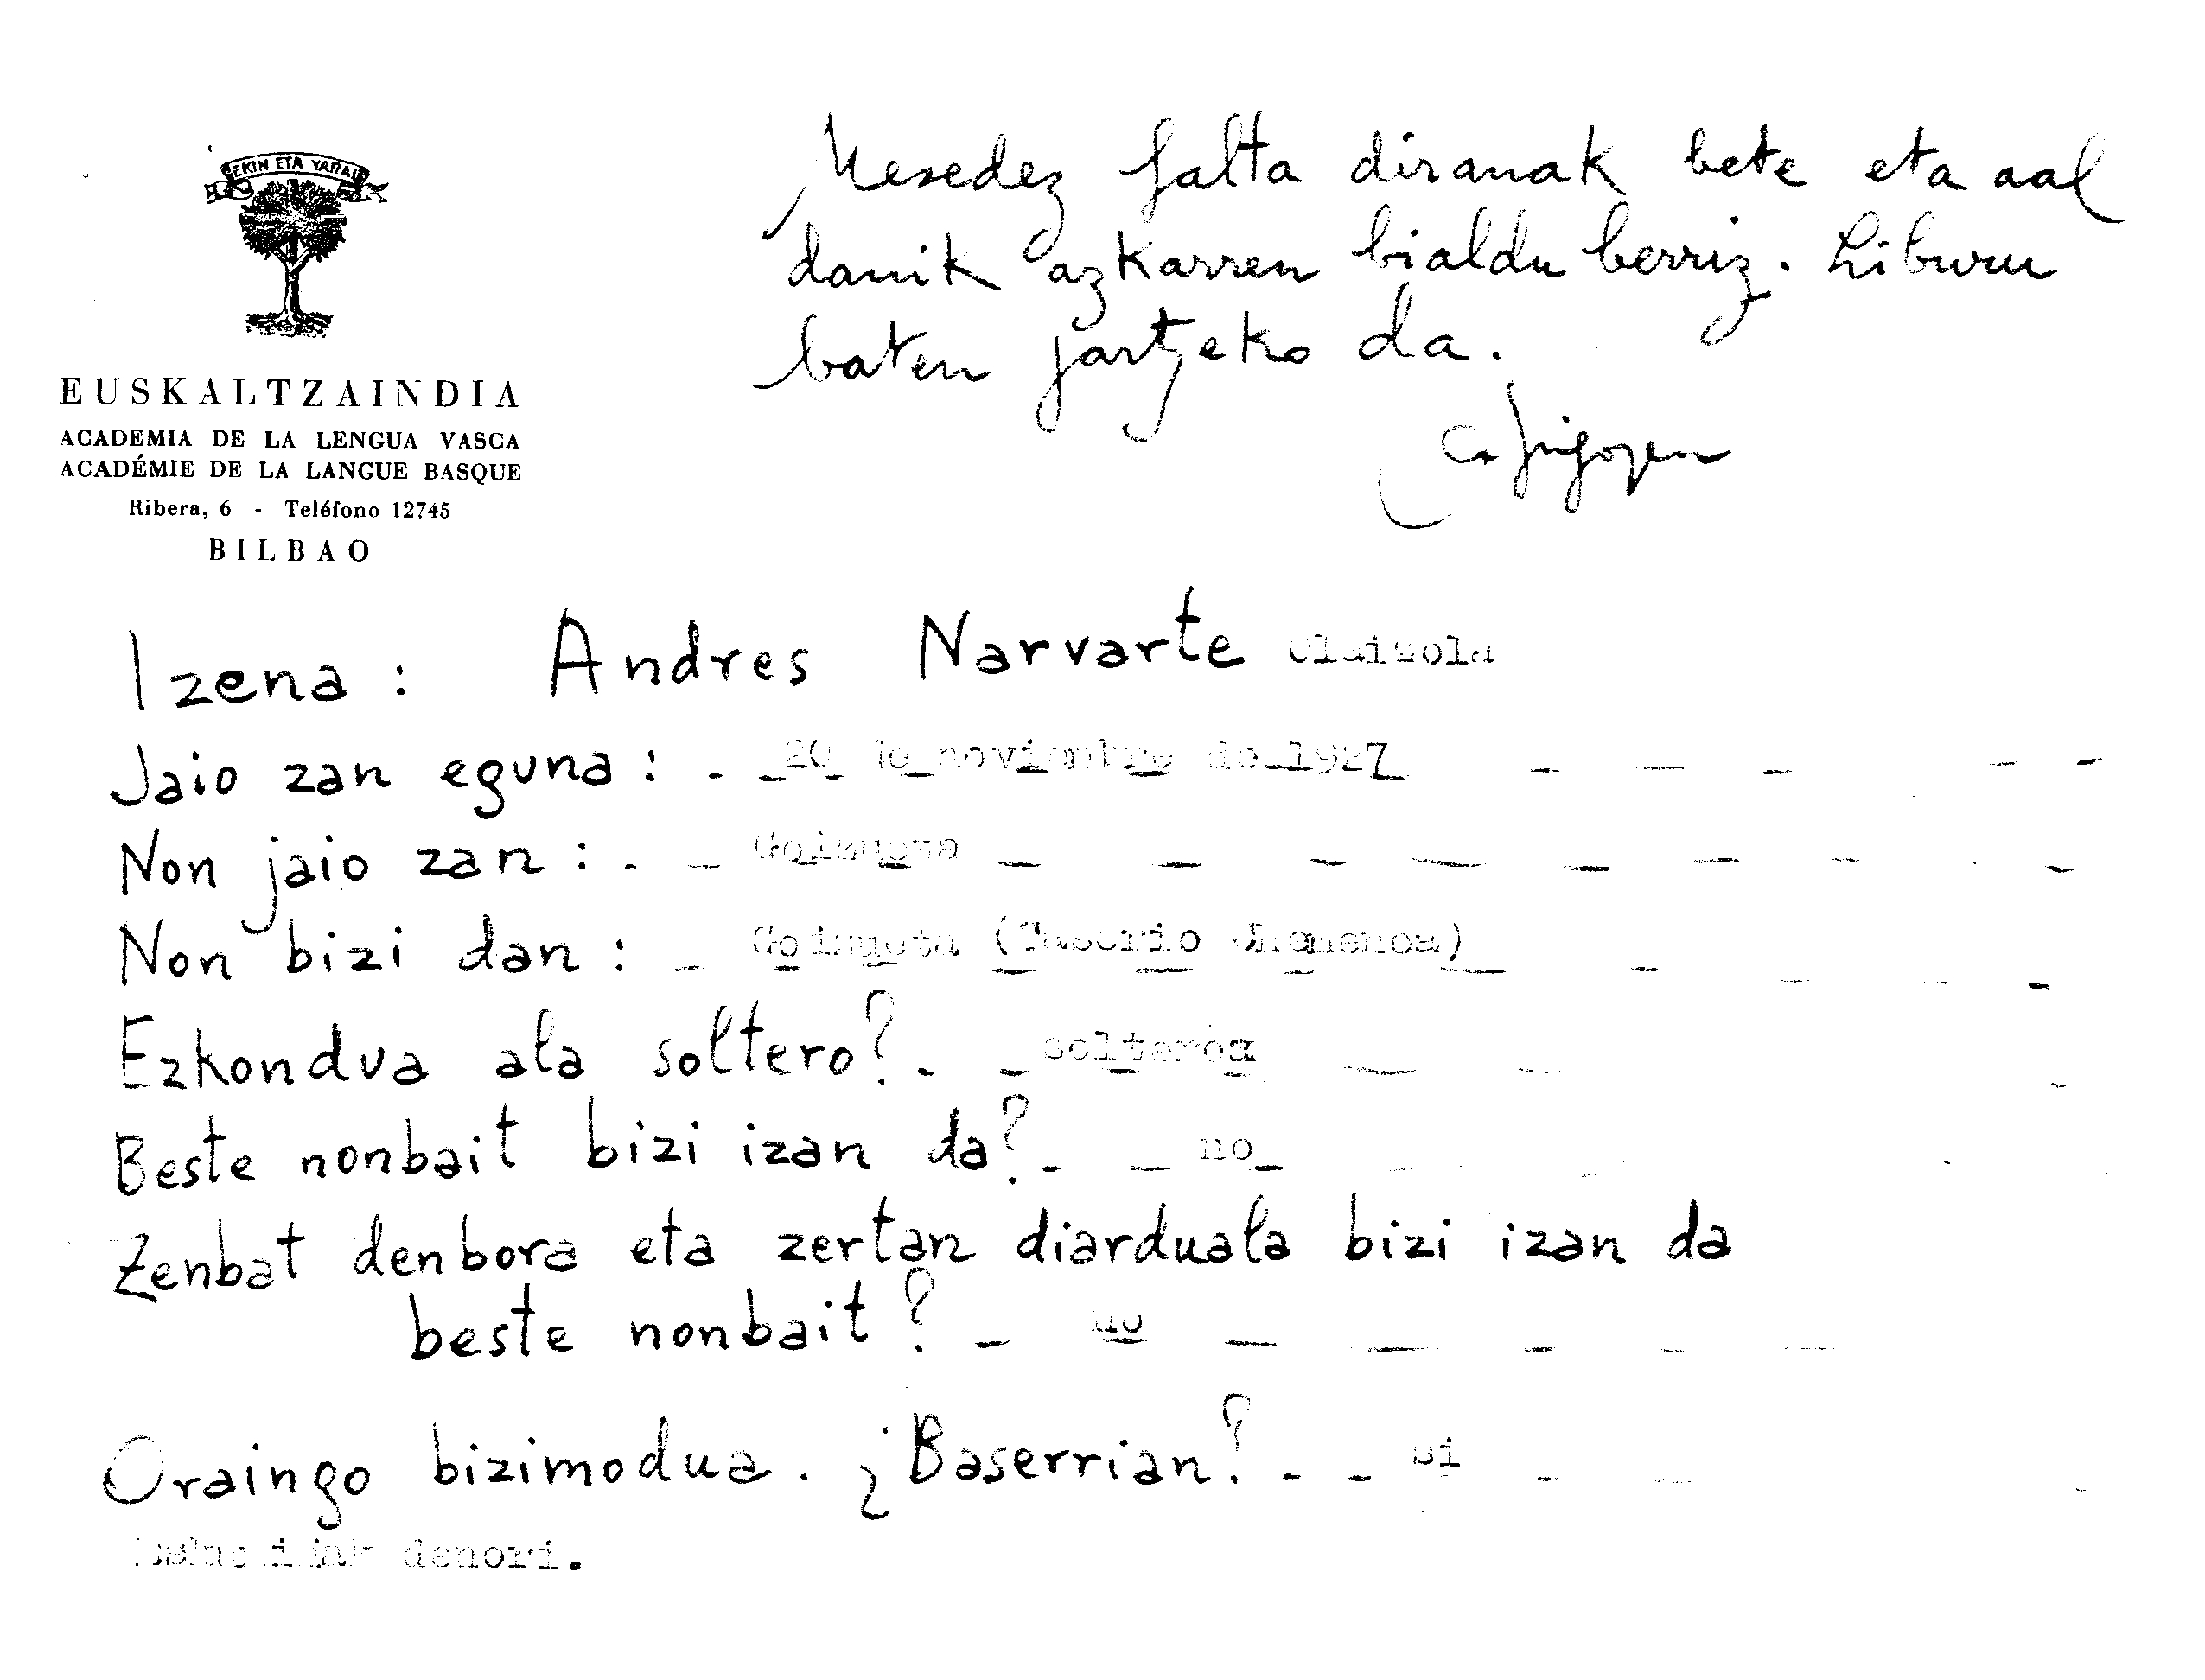 EKIN ETA YARAI
EUSKALTZAINDIA
ACADEMIA DE LA LENGUA VASCA
ACADÉMIE DE LA LANGUE BASQUE
Ribera, 6 - Teléfono 12745
BILBAO
Mesedez falta diranak bete eta aal
danik azkarren bialdu berriz. Liburu
baten jartzeko da.
Izena: Andres Narvarte
Jaio zan eguna: 20 de noviembre de 1927
Non jaio zan: Goizueta
Non bizi dan: Goizueta (Caserio
Ezkondua ala soltero? solterox
Beste nonbait bizi izan da? no
Zenbat denbora eta zertan diarduala bizi izan da
beste nonbait? no
Oraingo bizimodua. ¿Baserrian? si
denori.